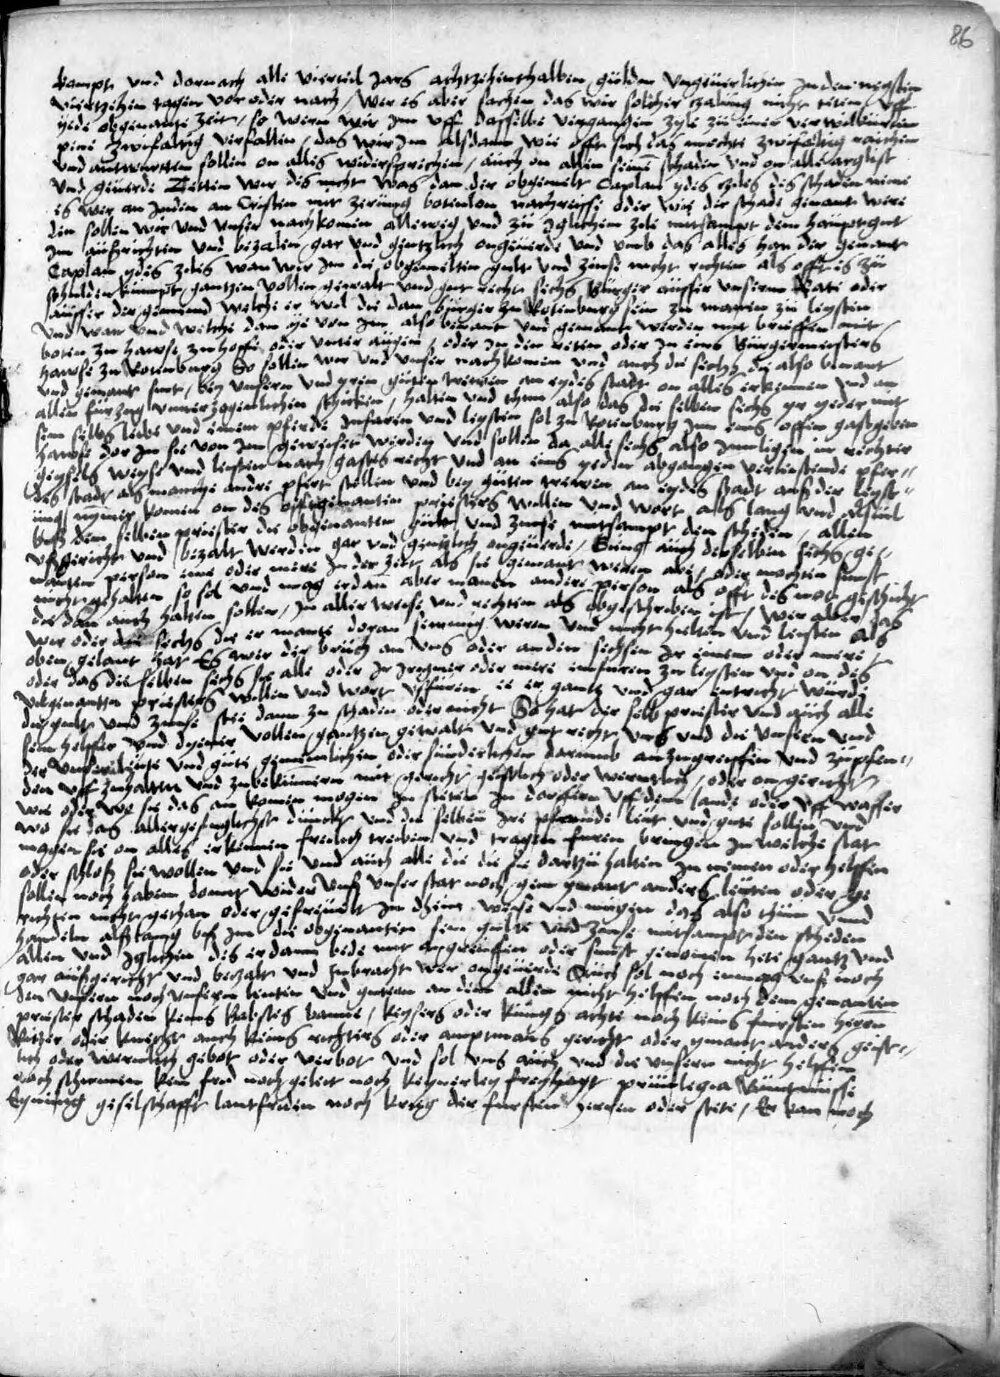 86
kompt und dornach alle vierteil Jars achtzehenthalben gulden ungeuerlichen In den negsten
viertzehen tagen vor oder nach / Wer es aber sachen das wir solicher zalung nicht teten / uff
yede obgenante Zeit / so weren wir Im uff dasselbe vergangen Zyle zu einer
pene zwifaltig verfallen / das wir Im alsdann wie offt sich das mechte zwifaltig raichen
und antwurten sollen on alles widersprechen / auch on allen seine schaden und on alle arglist
und geuerde Teten wir des nicht was dan der obgemelt Caplan ydes zeles des schaden neme
es wer an Juden an Cristen mit zerung botenlon nachreise oder wie der schade genant were
den sollen wir und unser nachkomen alleweg und zu yglichem zele mitsampt dem hauptgut
Im aufrichten und bezalen gar und gentzlich ongeuerde und umb das alles han der genant
Caplan ydes zeles wan wir Im die obgemelten gult und zinse nicht richten als offt es zu
schulden kumpt gantzen vollen gewalt und gut recht sechs burger ausser unserm Rate oder
ausser der gemeind welche er wil die dan burger zu Rotenburg sein zu manen zu leysten
und wan und welche dan ye von Im also benant und gemant werden mit brieffen mit
boten zu hawse zu hoffe oder unter augen / oder In den reten oder In eins Burgermeisters
hawse zu Rotenburg So sollen wir und unser nachkomen und auch die sechs die also benant
und gemant sint / bey unsern und yren guten trewen an eydes stadt on alles erkennen und on
allen furzog unverzogenlichen schicken / halten und thun also das die selben sechs yr yeder mit
sein selbs leibe und einem pferde Infaren und leysten sol zu Rotenburg In eins offen gastgeben
hawse dor In sie von Im geweiset werden und sollen da alle sechs also Inneligen in rechter
geysels weyse und leisten nach gastes recht und an eins yeden abgangen verleistende pfer-
des stadt als manche andre pfert stellen und bey guten trewen an eydes stadt auß der leyst-
ung nymer komen on des obgenanten priesters willen und wort als lang und als vil
biß dem selben priester die obgenanten gult und zinse mitsampt den scheden allen
ufgericht und bezalt werden gar und gentzlich ongeuerde / Ging auch derselben sechs ge-
nanten person eine oder mere In der zeit als sie gemant weren abe / oder mochten sunst
nicht gehalten so sol und mag er dan aber manen andere person als offt des not geschicht
die dan auch halten sollen / In aller weise und rechten als obgeschriben ist / Wer aber das
wir oder die sechs die er mante doran seumig weren und nicht hielten und leisten als
oben gelaut hat Es wer der bruch an uns oder an den sechsen Ir einem oder mere
oder das die selben sechs sie alle oder Ir Irgener oder mere infuren zu leysten und on des
vilgenanten priesters willen und wort ußfuren ee er gantz und gar entricht wurde
der gult und zinse seie dann zu schaden oder nicht So hat der selb priester und auch alle
sein helfer und dyener vollen gantzen gewalt und gut recht uns und die unsern und
der unsern leute und gute gemeinlichen oder sunderlichen darumb anzugreyffen und zupfen-
den uff zuhalten und zubekumern mit gericht geistlich oder werntlich / oder on gericht /
wie oder wo sie das an komen mogen In steten In dorffern uff dem lande oder uff wasser
wo sie das allergefuglichst dunckt und die selben Ire pfande leut und gute sollen und
mogen sie on alles erkennen frolich treiben und tragen furen bringen In welche stat
oder schloß sie wollen und sie und auch alle die die sie dartzu halten zu nemen oder helffen
sollen noch haben domit wider unß unser stat noch gein ymant anders leuten oder ge-
richten nicht gethan oder gefreuelt In dhein weise und mugen das also thun und
handeln alßlang biß Im die obgenanten sein gulte und zinse mitsampt den scheden
allen und yglichen des er dann bede mit angreiffen oder sunst genomen hete gantz und
gar außgericht und bezalt und zubracht wer ongeuerde Auch sol noch enmag unß noch
den unsern noch unsern leuten und gutern an dem allen nicht helffen noch dem genanten
priester schaden keins babstes banne / keysers oder kunigs achte noch keins fursten herren
Ritter oder knecht auch keins richters oder amptmans gericht oder ymant anders geist-
lich oder werntlich gebot oder verbot und sol uns auch und die unsern nicht helffen
noch schirmen kein frid noch geleit noch keynerley freyhayt priuilegia Buntnusse
Eynung geselschafft lantfriden noch krieg der fursten herren oder stete / Er kan noch